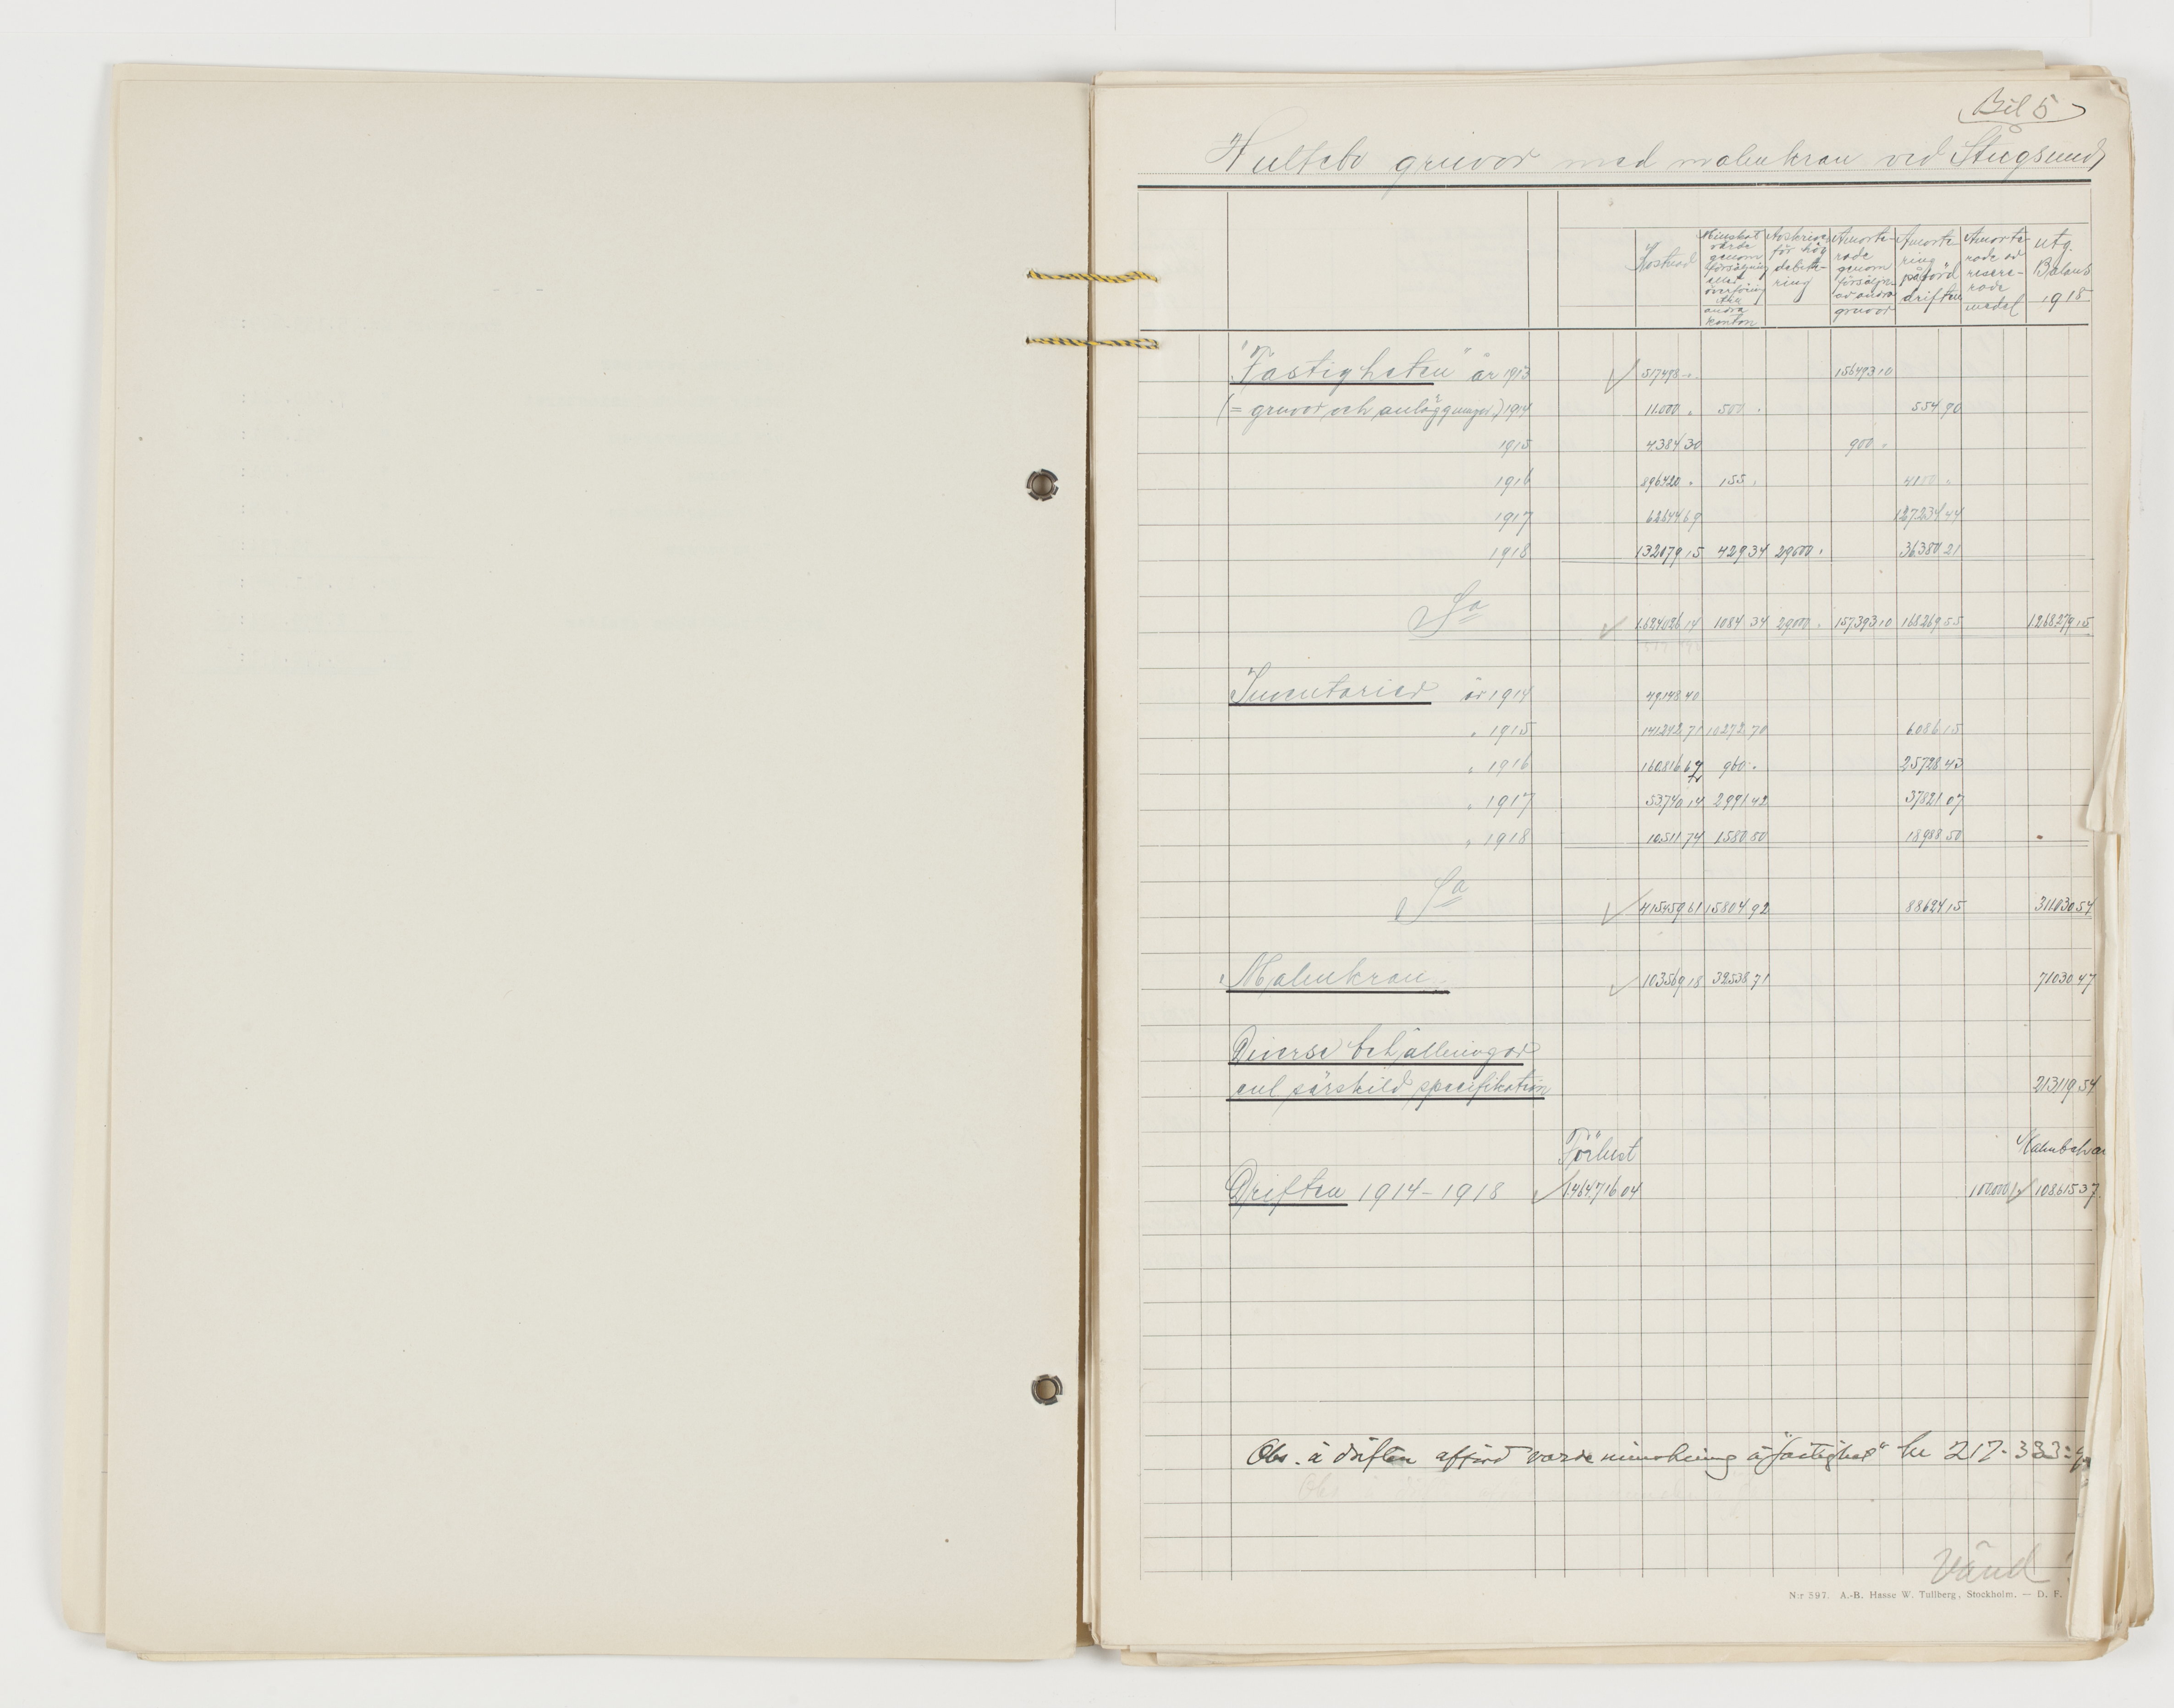 Bil 5
Hultebo gruvor med malmkran vid Stugsund
Kostnad
Minskat värde genom försäljning eller överföring till andra konton
Avskrivn. för hög debite-ring
Amorte-rade genom försäljn. av andra gruvor
Amorte-ring påförd driften
Amorte-rade av reserve-rade medel
utg. Balans 1918
"Fastigheten" år 1913 517498.- 156493 10
(= gruvor och anläggningar) 1914 11.000 . 500 . 554 90
1915 4.384 30 900 .
1916 896420 . 155 . 4100 .
1917 62644 69 127234 44
1918 132079 15 429 34 29000 . 36380 21
Sa 1.624026 14 1084 34 29000 . 157393 10 168269 55 1268279 15
Inventarier år 1914 49148 40
" 1915 141242 71 10272 70 6086 15
" 1916 160816 62 960 . 25728 43
" 1917 53740 14 2991 42 37821 07
" 1918 10511 74 1580 80 18988 50
Sa 415459 61 15804 92 88624 15 311030 54
Malmkran 103569 18 32538 71 71030 47
Diverse behållningar
enl särskild specifikation 213119 54
Förlust
Driften 1914-1918 1.464.716 04 100000 . 108615 37
Obs. å driften afförd värdeminskning å "fastighet" kr 217.333:
Vänd
N:r 597. A.-B. Hasse W. Tullberg, Stockholm. — D. F.